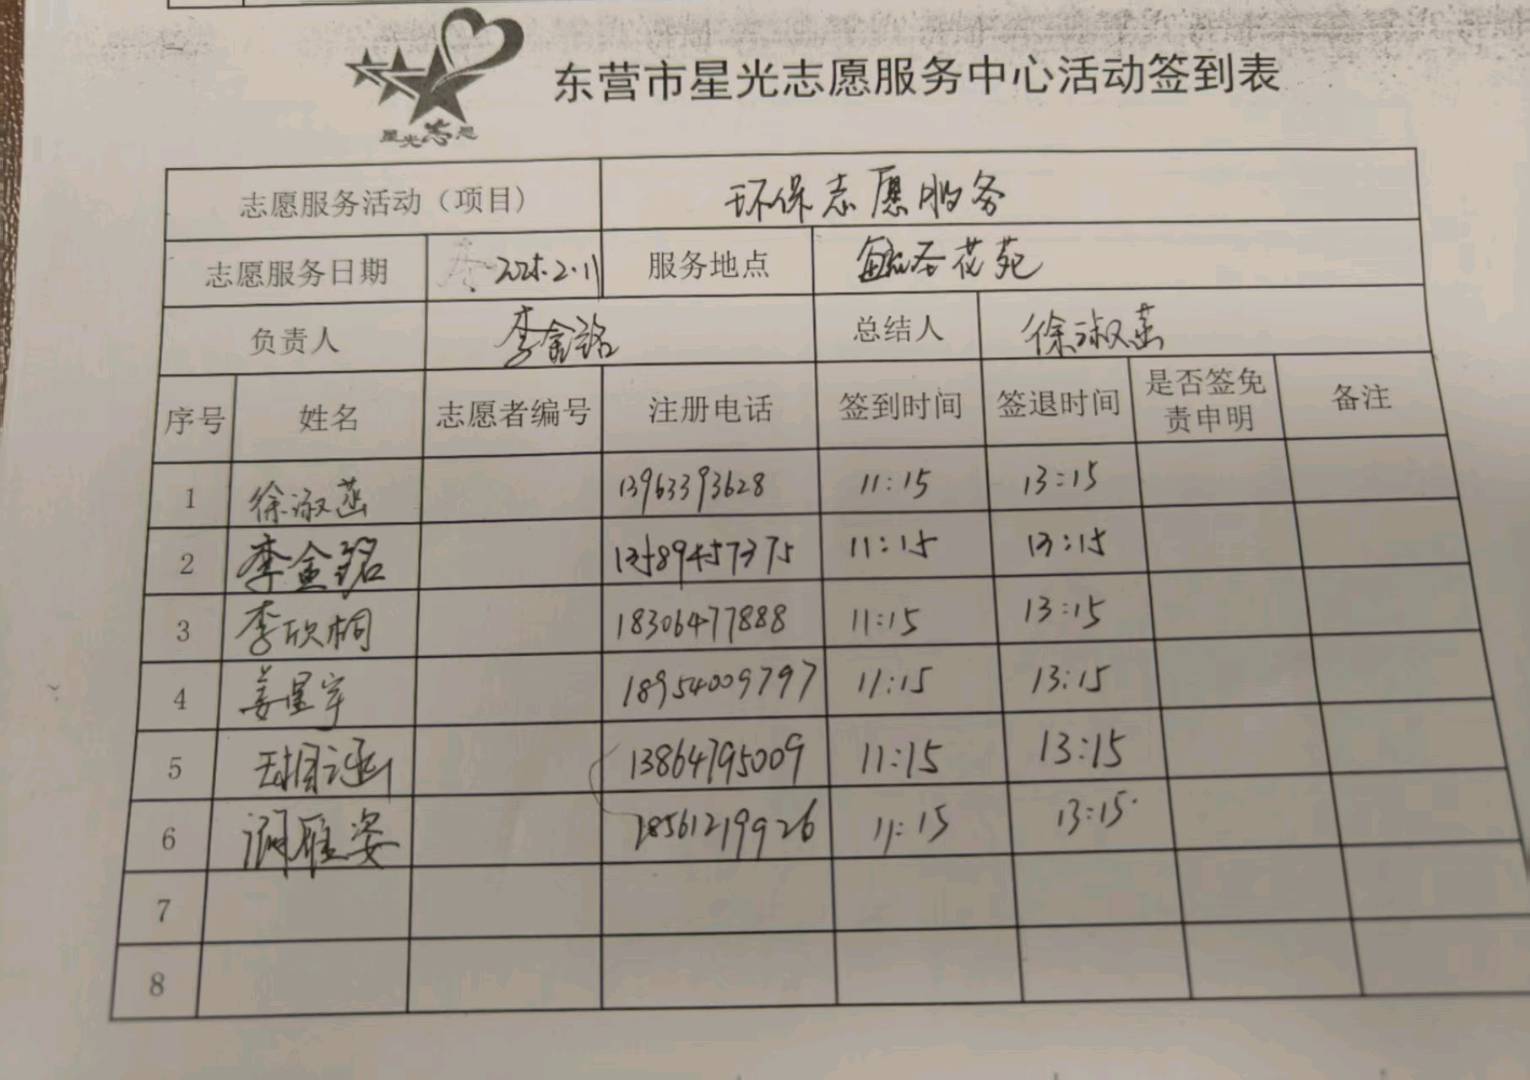 星光志愿
东营市星光志愿服务中心活动签到表
志愿服务活动（项目） 环保志愿服务
志愿服务日期 2025.2.11 服务地点 花苑
负责人 李金铭 总结人 徐淑菡
序号 姓名 志愿者编号 注册电话 签到时间 签退时间 是否签免责申明 备注
1 徐淑菡 13963393628 11:15 13:15
2 李金铭 13589457375 11:15 13:15
3 李欣桐 18306477888 11:15 13:15
4 姜星宇 18954009797 11:15 13:15
5 13864795009 11:15 13:15
6 18561219926 11:15 13:15
7
8